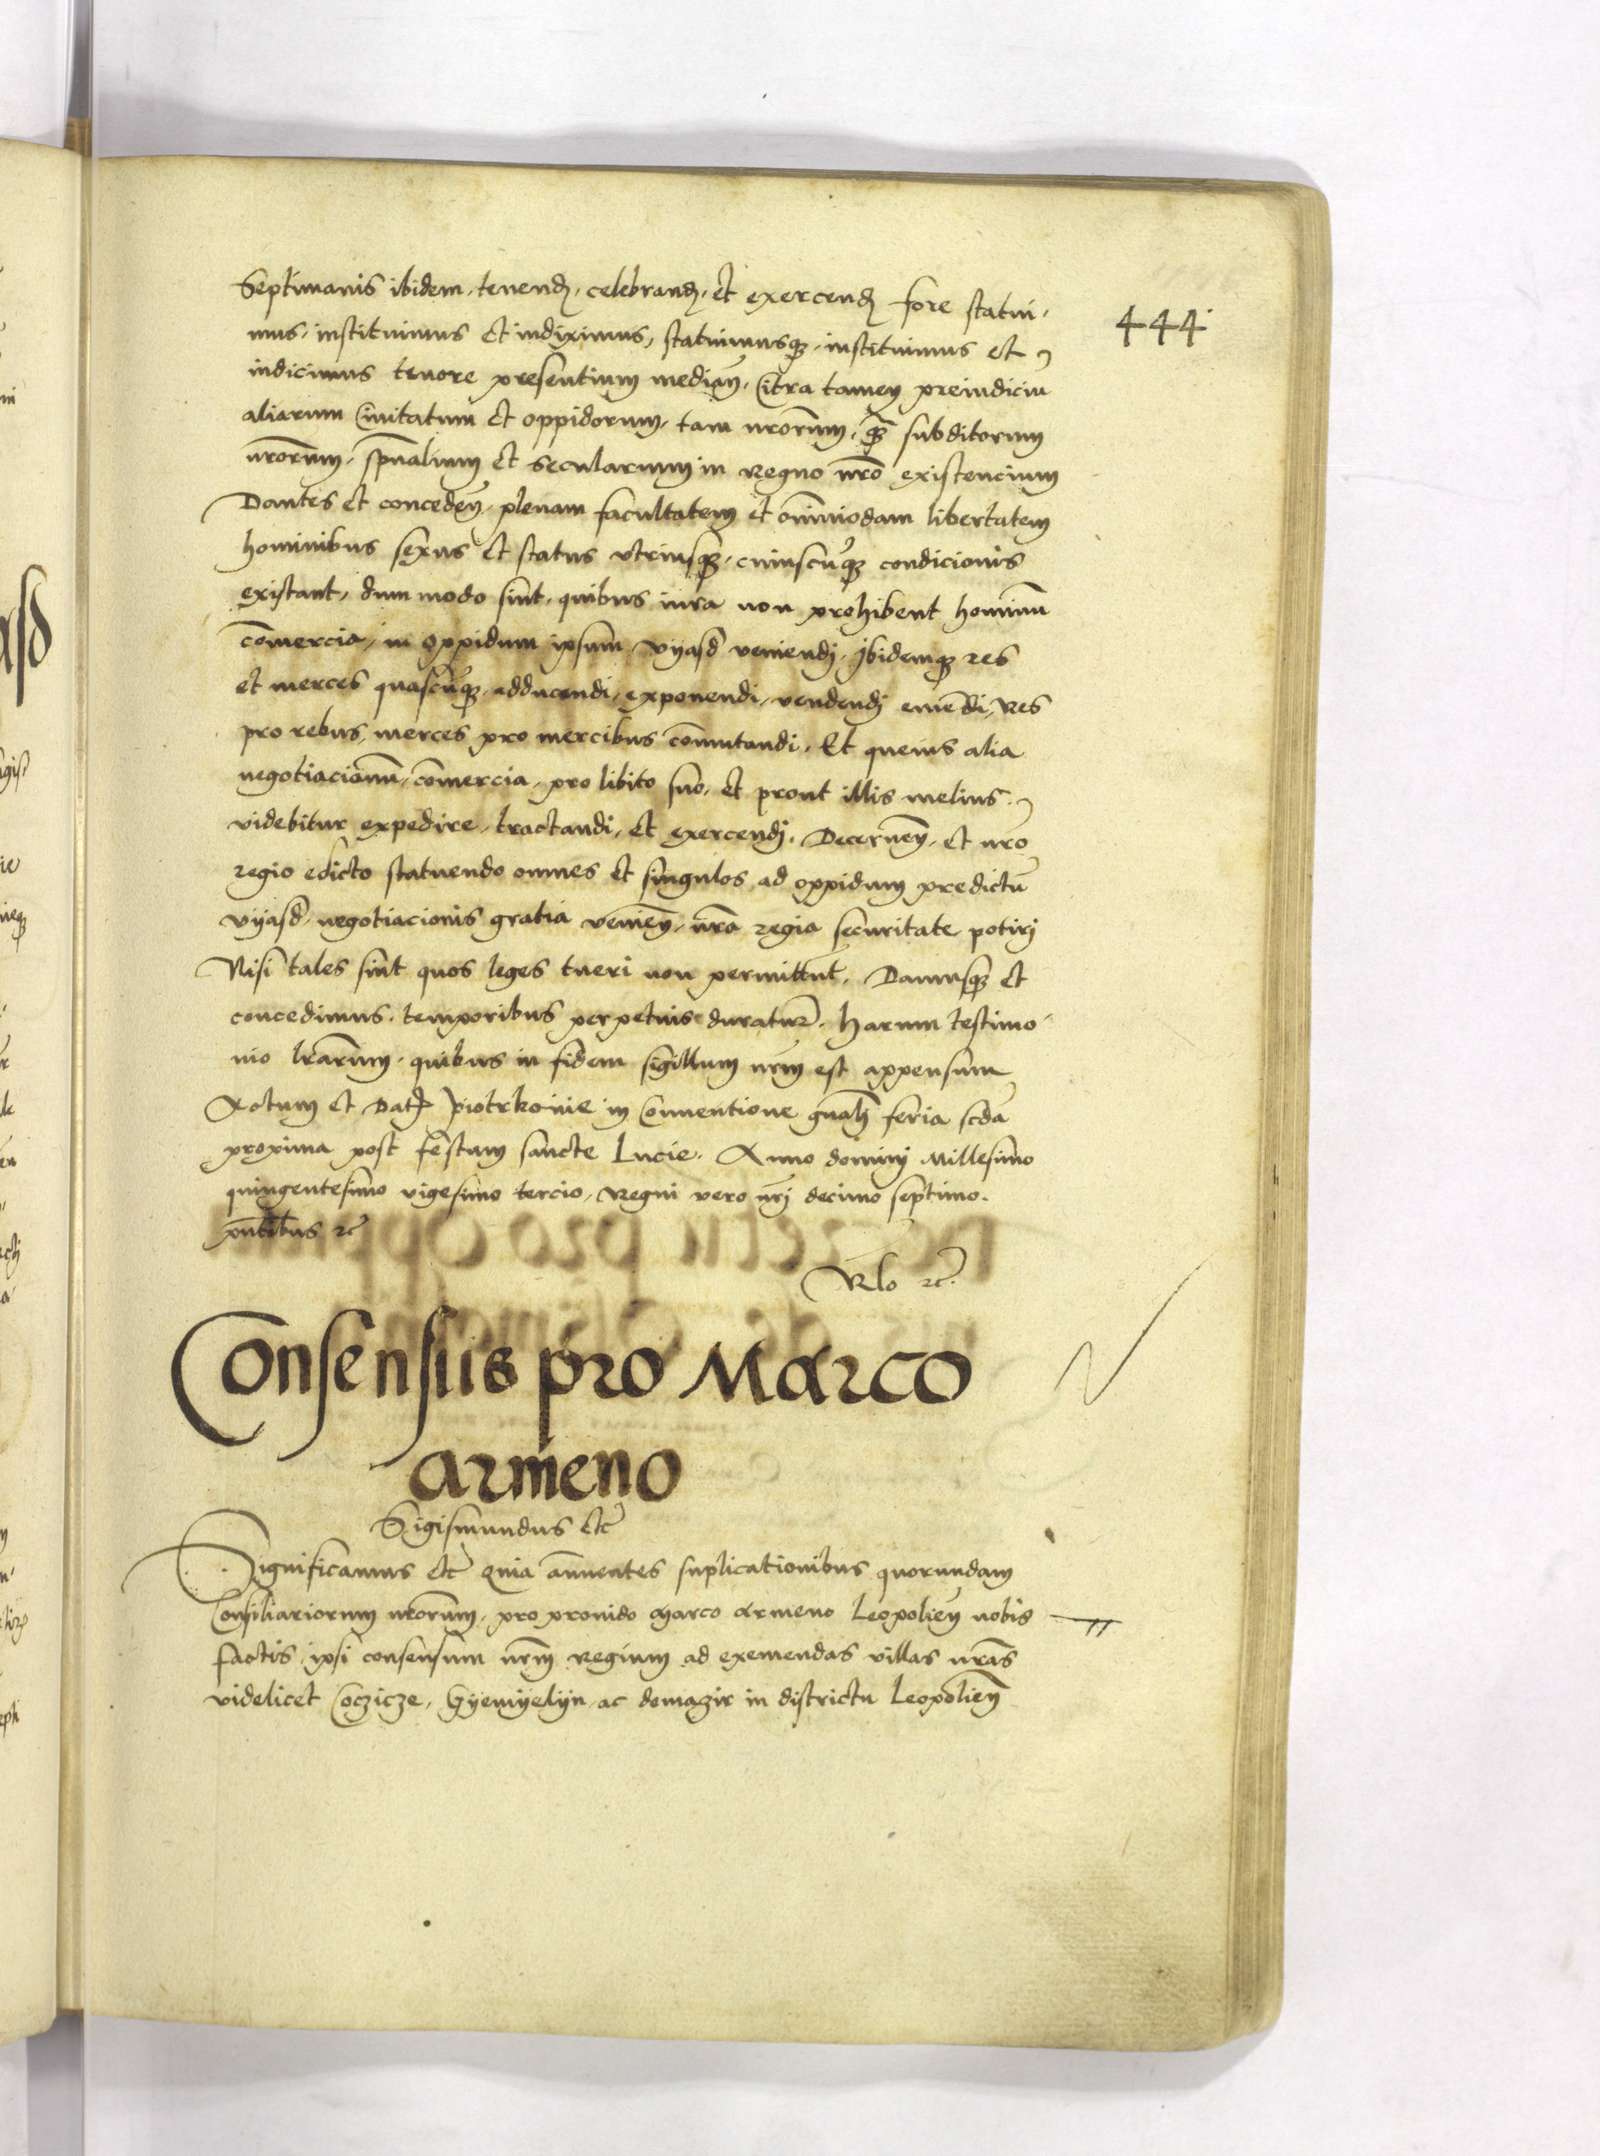 444
Septimanis ibidem, tenend, celebrand, et exercend fore statui-
mus, instituimus et indiximus, statuimusq, instituimus et
indicimus tenore presentium median, Citra tamen preiudiciu
aliarum Civitatum et oppidorum, tam nrorum, q subditorum
nrorum, spualium et secularium in Regno nro existencium
Dantes et conceden, plenam facultatem et omnimodam libertatem
hominibus sexus et status vtriusq, cuiuscuq condicionis
existant, dum modo sint, quibus iura non prohibent hominu
comercia, in oppidum ipsum Vyasd veniendi, Ibidemq res
et merces quascuq, adducendi, exponendi, vendendi emendi, Res
pro rebus, merces pro mercibus comutandi, Et queuis alia
negotiacionu, comercia, pro libito suo, et prout illis melius
videbitur expedire, tractandi, et exercendi, Decernen, et nro
regio edicto statuendo omnes et singulos ad oppidum predictu
Vyasd, negotiacionis gratia venien, nra regia securitate potiri
Nisi tales sint quos leges tueri non permittut, Damusq et
concedimus, temporibus perpetuis duratur, Harum testimo-
nio lrarum, quibus in fidem sigillum nrm est appensum
Actum et Dat Piotrkouie in Conuentione gnali feria scda
proxima post festum sancte Lucie, Anno domini Millesimo
quingentesimo vigesimo tercio, Regni vero nri decimo septimo.
pntibus etc
Rlo etc.
Consensus pro Marco
armeno
Sigismundus etc
Significamus etc quia annuentes suplicationibus quorundam
Consiliariorum nrorum, pro prouido Marco Armeno Leopolien nobis
factis, ipsi consensum nrm Regium ad exemendas villas nras
videlicet Coczicze, Gyemyelyn, ac demazir in districtu Leopolien